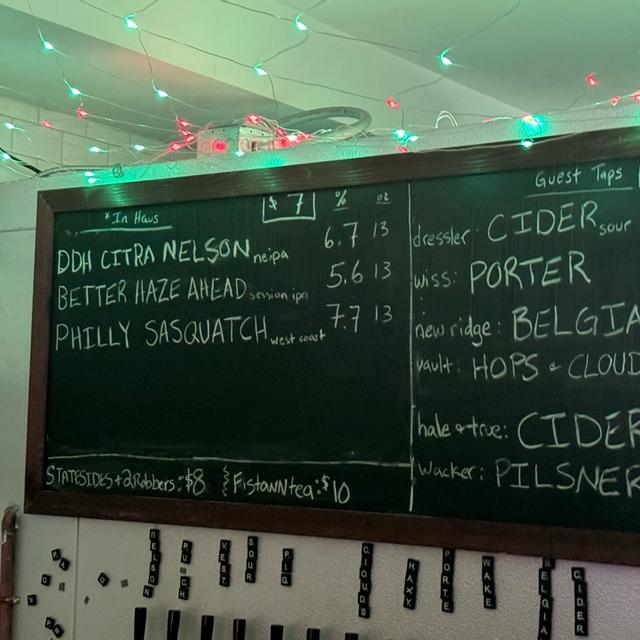 *In Haus $7 % oz
DDH CITRA NELSON neipa 6.7 13
BETTER HAZE AHEAD session ipa 5.6 13
PHILLY SASQUATCH west coast 7.7 13
STATESIDES + 2Robbers: $8 FistownTea: $10
Guest Taps
dressler: CIDER sour
wiss: PORTER
new ridge: BELGIA
vault: HOPS & CLOUD
hale & true: CIDER
Wacker: PILSNER
NELSON
VEST
SOUR
PIG
CLOUDS
HAXY
PORTE
WAKE
BELGIA
CIDER